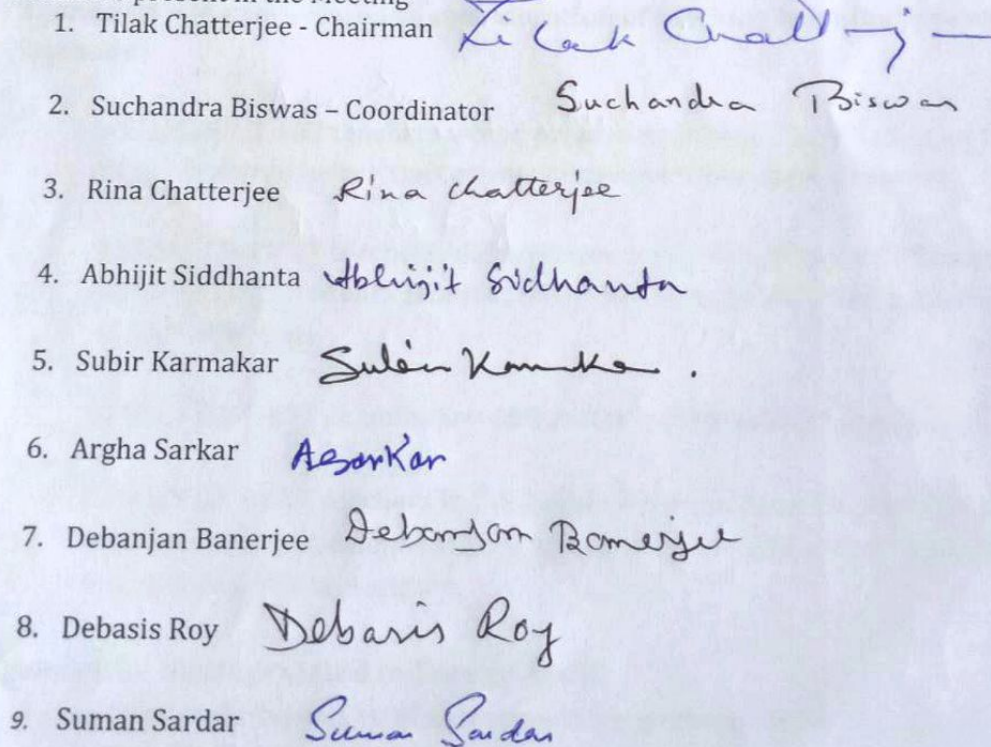 present in the Meeting
1. Tilak Chatterjee - Chairman Tilak Chatterj
2. Suchandra Biswas – Coordinator Suchandra Biswas
3. Rina Chatterjee Rina Chatterjee
4. Abhijit Siddhanta Abhijit Sidhanta
5. Subir Karmakar Subir Karmakar.
6. Argha Sarkar ASarkar
7. Debanjan Banerjee Debanjan Banerjee
8. Debasis Roy Debasis Roy
9. Suman Sardar Suman Sardar